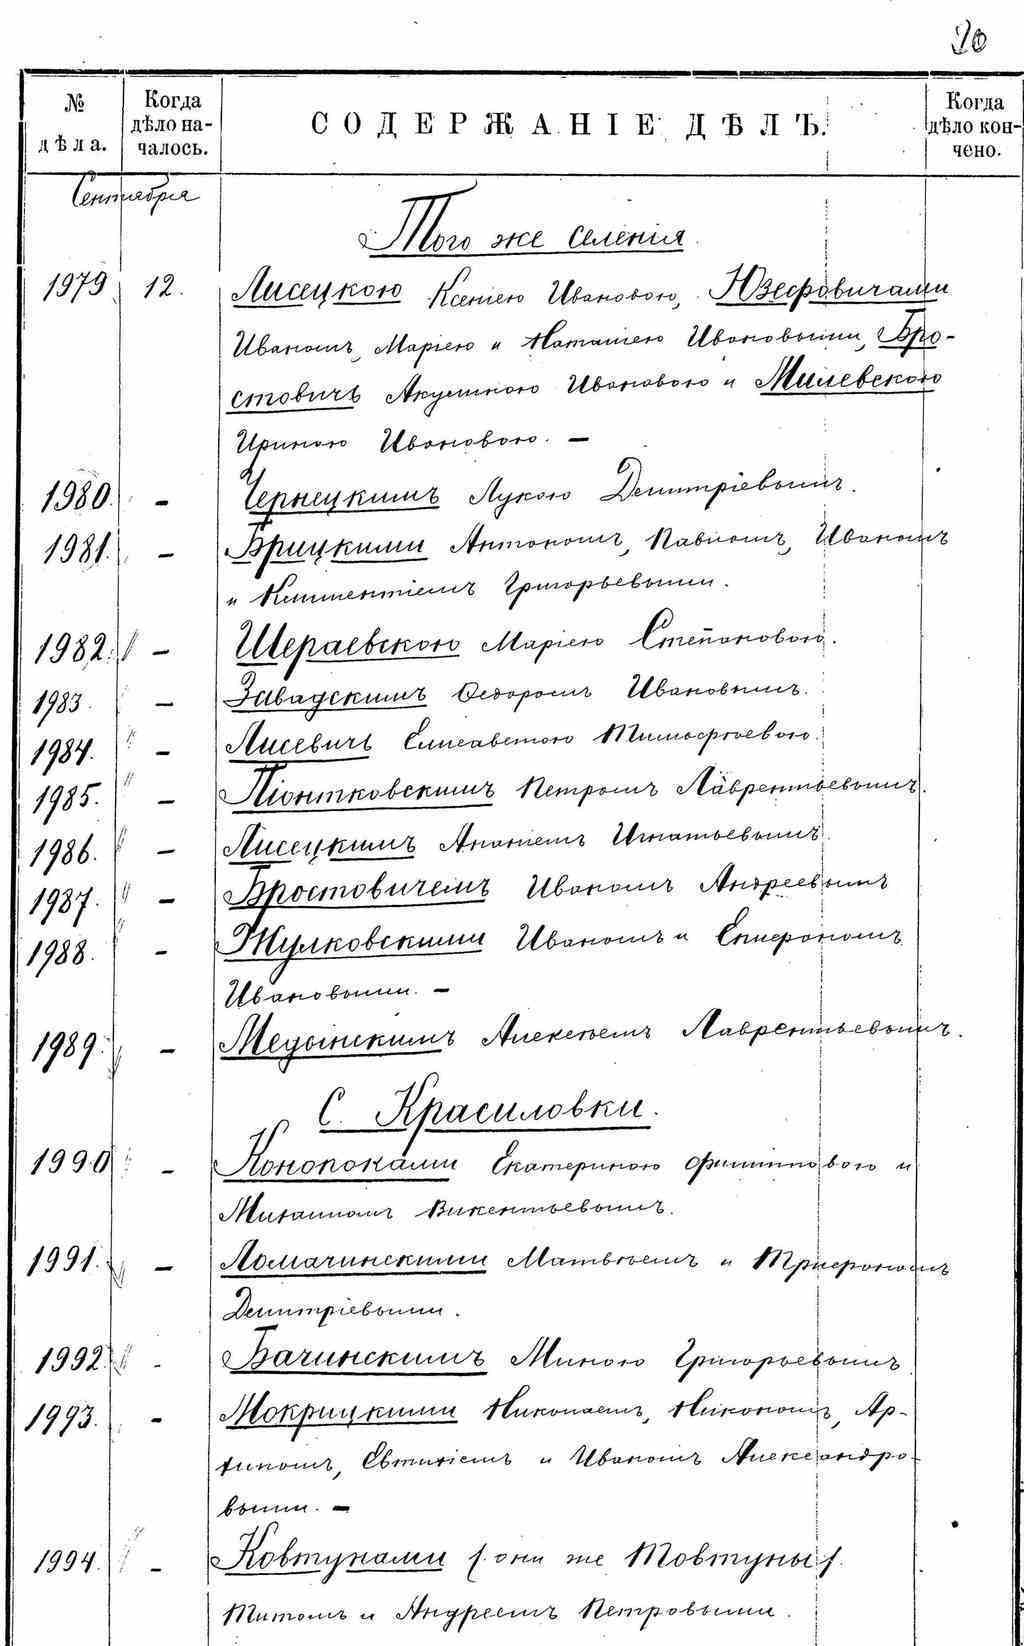 20
№ дѣла.
Когда дѣло началось.
СОДЕРЖАНІЕ ДѢЛЪ.
Когда дѣло кончено.
Сентября
Того же селенія.
1979 12. Лисецкою Ксеніею Ивановою, Юзефовичами
Иваномъ, Маріею и Наталіею Ивановыми, Бро-
стовичъ Акулиною Ивановою и Милевскою
Ириною Ивановою. —
1980. — Чернецкимъ Лукою Димитріевымъ.
1981. — Брицкими Антономъ, Павломъ, Иваномъ
и Климентіемъ Григорьевыми.
1982. " — Шераевскою Маріею Степановою.
1983. " — Завадскимъ Ѳедоромъ Ивановымъ.
1984. " — Лисевичъ Елисаветою Тимофѣевою.
1985. " — Піонтковскимъ Петромъ Лаврентьевымъ.
1986. " — Лисецкимъ Ананіемъ Игнатьевымъ.
1987. " — Бростовичемъ Иваномъ Андреевымъ
1988. " — Жулковскими Иваномъ и
Ивановыми. —
1989. " — Медынскимъ Алексѣемъ Лаврентьевымъ.
С. Красиловки.
1990 " — Конопоками Екатериною Филипповою и
Михаиломъ Викентьевымъ.
1991. " — Ломачинскими Матвѣемъ и Трифономъ
Димитріевыми.
1992. " - Бачинскимъ Миною Григорьевымъ
1993. — Мокрицкими Николаемъ, Никономъ, Ар-
хипомъ, Евтихіемъ и Иваномъ Александро-
выми. —
1994. " — Ковтунами /. они же Товтуны /.
Титомъ и Андреемъ Петровыми.